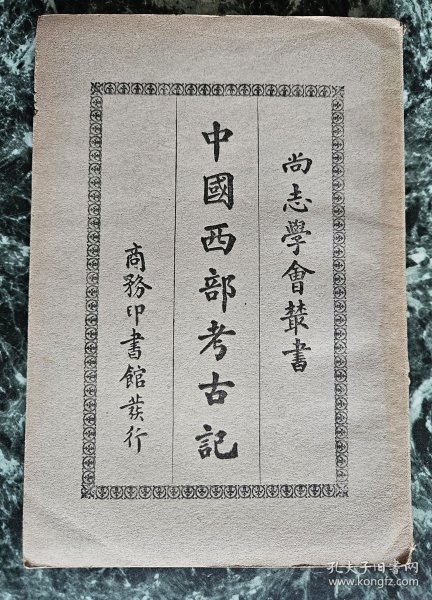 尚志學會叢書
中國西部考古記
商務印書館發行
孔夫子旧书网
www.kongfz.com